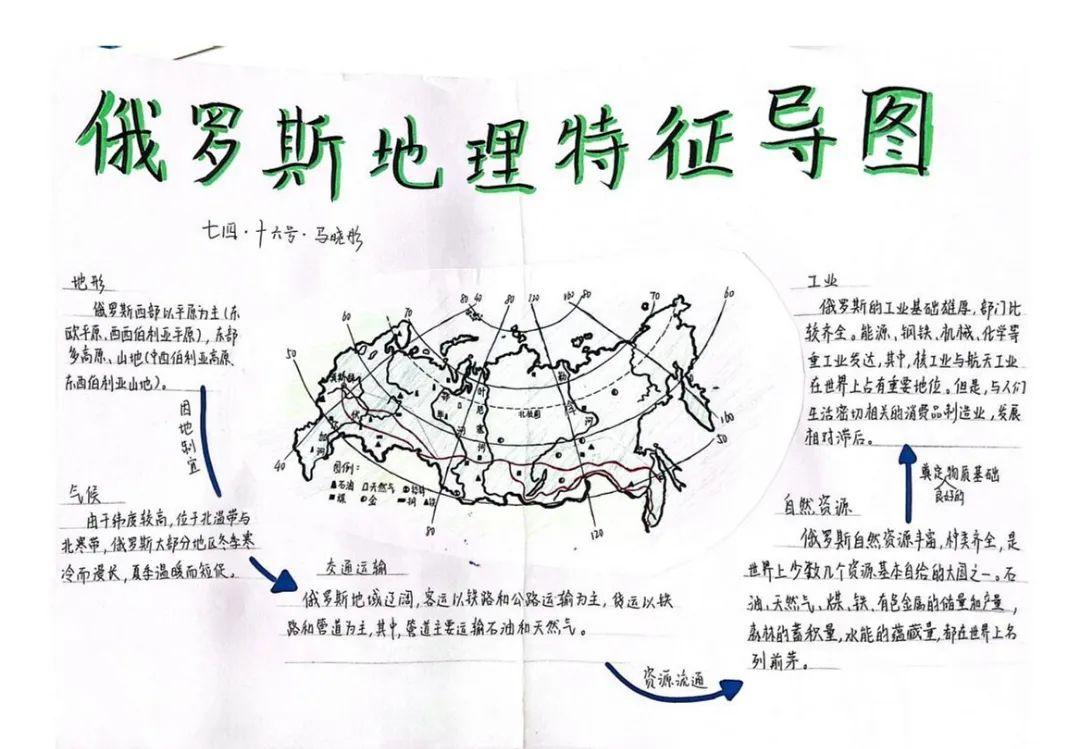 俄罗斯地理特征导图
七四·十六号·马晓彤
地形
俄罗斯西部以平原为主(东
欧平原、西西伯利亚平原),东部
多高原、山地(中西伯利亚高原、
东西伯利亚山地)。
因地制宜
气候
由于纬度较高,位于北温带与
北寒带,俄罗斯大部分地区冬季寒
冷而漫长,夏季温暖而短促。
80 40 80 120 80 70 60
70
60
50
40
莫斯科
伏
尔
加
河
鄂
毕
河
叶
尼
塞
河
勒
拿
河
北极圈
160
50
80
120
图例:
石油 天然气
煤 金 铜 铁
交通运输
俄罗斯地域辽阔,客运以铁路和公路运输为主,货运以铁
路和管道为主,其中,管道主要运输石油和天然气。
资源流通
自然资源
俄罗斯自然资源丰富,种类齐全,是
世界上少数几个资源基本自给的大国之一。石
油、天然气、煤、铁、有色金属的储量和产量,
森林的蓄积量,水能的蕴藏量,都在世界上名
列前茅。
奠定物质基础
良好的
工业
俄罗斯的工业基础雄厚,部门比
较齐全。能源、钢铁、机械、化学等
重工业发达,其中,核工业与航天工业
在世界上占有重要地位。但是,与人们
生活密切相关的消费品制造业,发展
相对滞后。